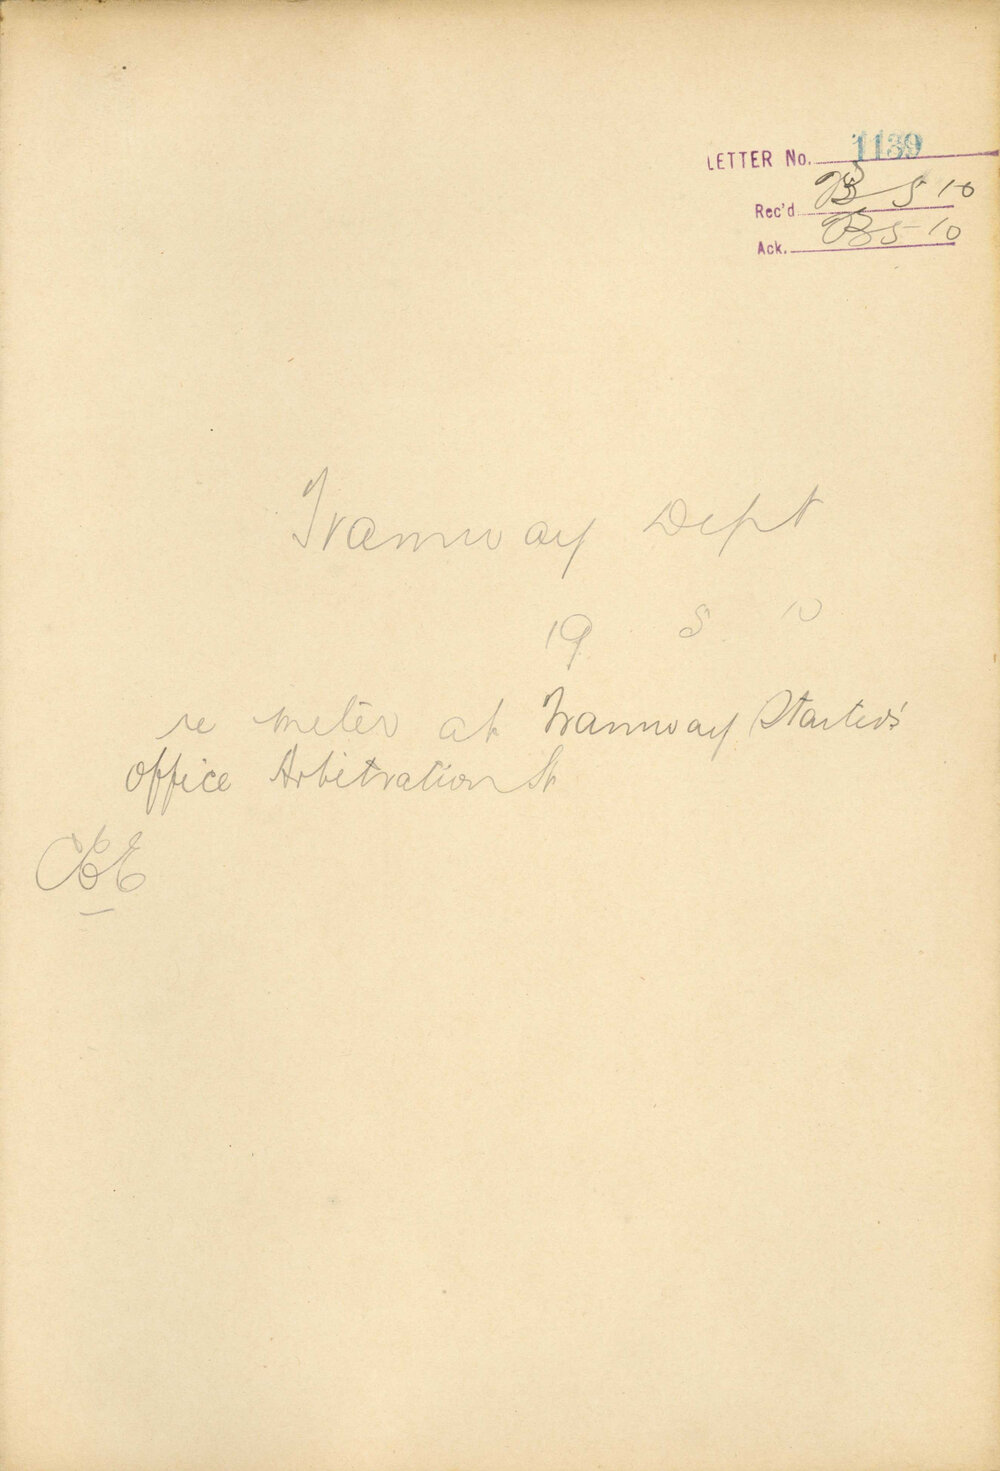 LETTER No. 1139
Rec'd 5 10
Ack. 5 10
Tramway Dept
19 5 10
re meter at Tramway Starters'
Office Arbitration St